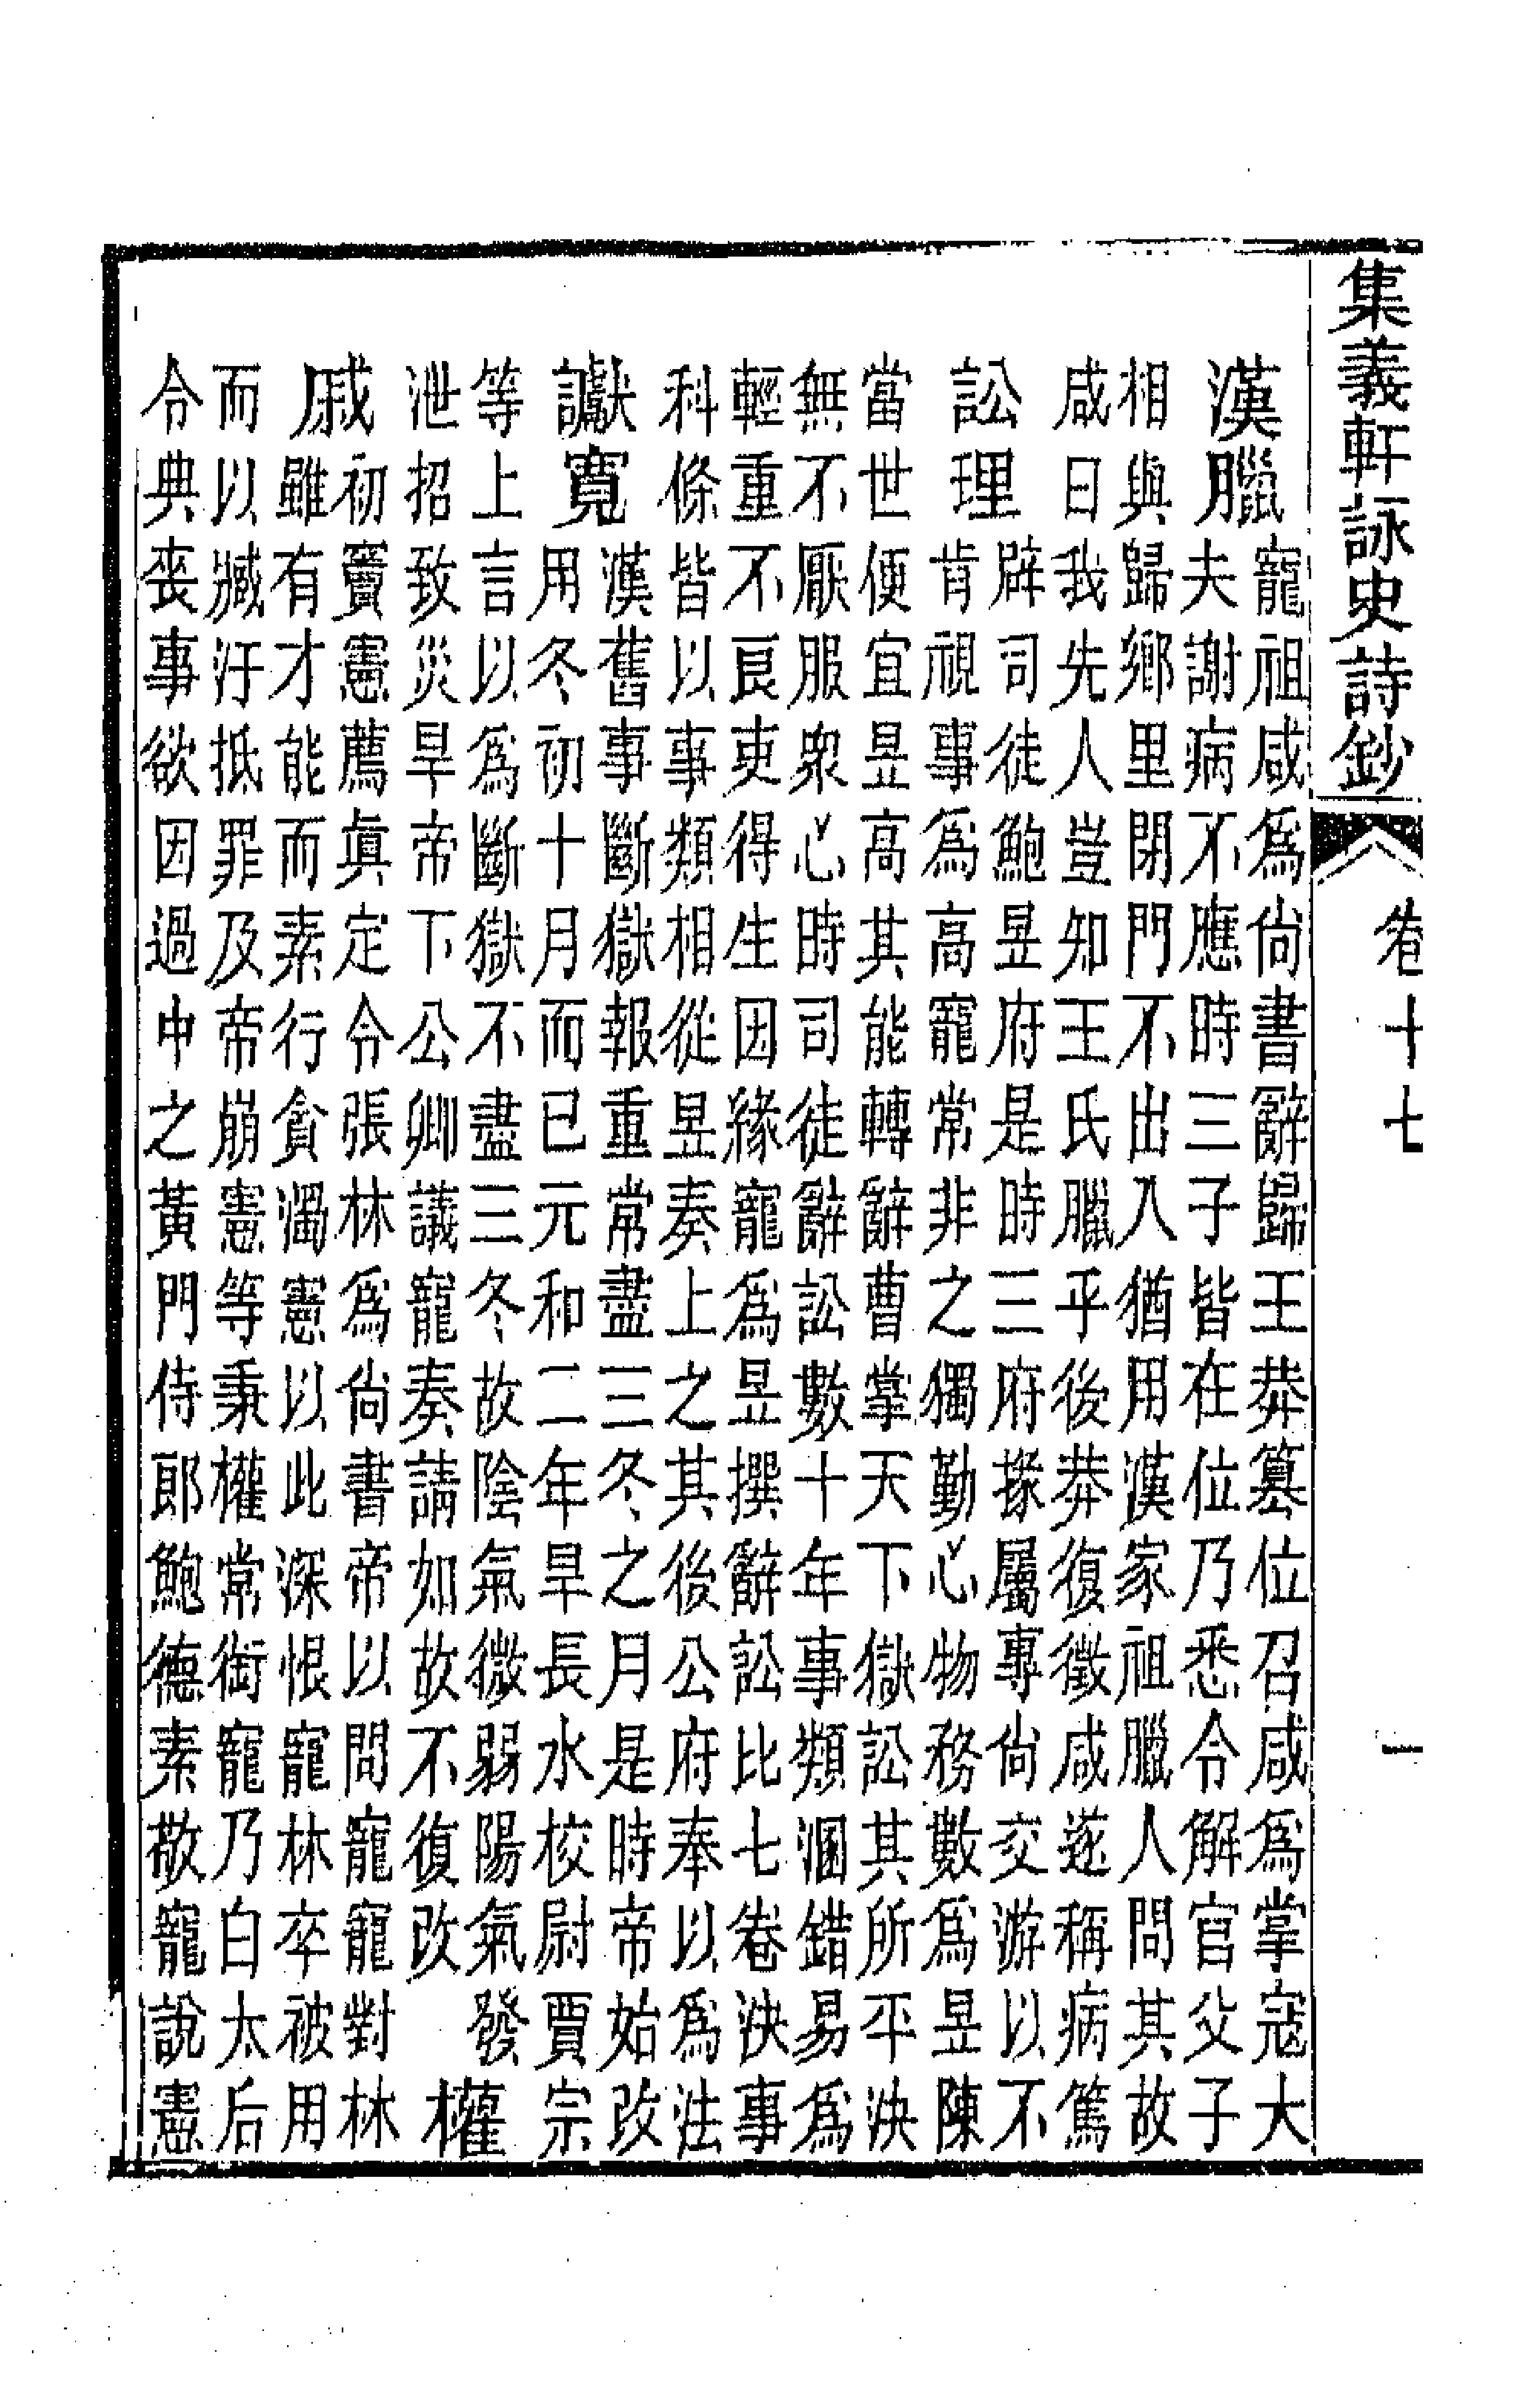 集義軒詠史詩鈔 卷十七 一
漢臘
寵祖咸爲尙書辭歸王莽篡位召咸爲掌寇大
夫謝病不應時三子皆在位乃悉令解官父子
相與歸鄉里閉門不出入猶用漢家祖臘人問其故
咸曰我先人豈知王氏臘乎後莽復徵咸遂稱病篤
訟理
辟司徒鮑昱府是時三府掾屬專尙交游以不
肯視事爲高寵常非之獨勤心物務數爲昱陳
當世便宜昱高其能轉辭曹掌天下獄訟其所平決
無不厭服衆心時司徒辭訟數十年事類溷錯易爲
輕重不良吏得生因緣寵爲昱撰辭訟比七卷決事
科條皆以事類相從昱奏上之其後公府奉以爲法
讞寬
漢舊事斷獄報重常盡三冬之月是時帝始改
用冬初十月而已元和二年旱長水校尉賈宗
等上言以爲斷獄不盡三冬故陰氣微弱陽氣發
泄招致災旱帝下公卿議寵奏請如故不復改
權
戚
初竇憲薦眞定令張林爲尙書帝以問寵寵對林
雖有才能而素行貪濁憲以此深恨寵林卒被用
而以臧汙抵罪及帝崩憲等秉權常銜寵乃白太后
令典喪事欲因過中之黃門侍郎鮑德素敬寵說憲